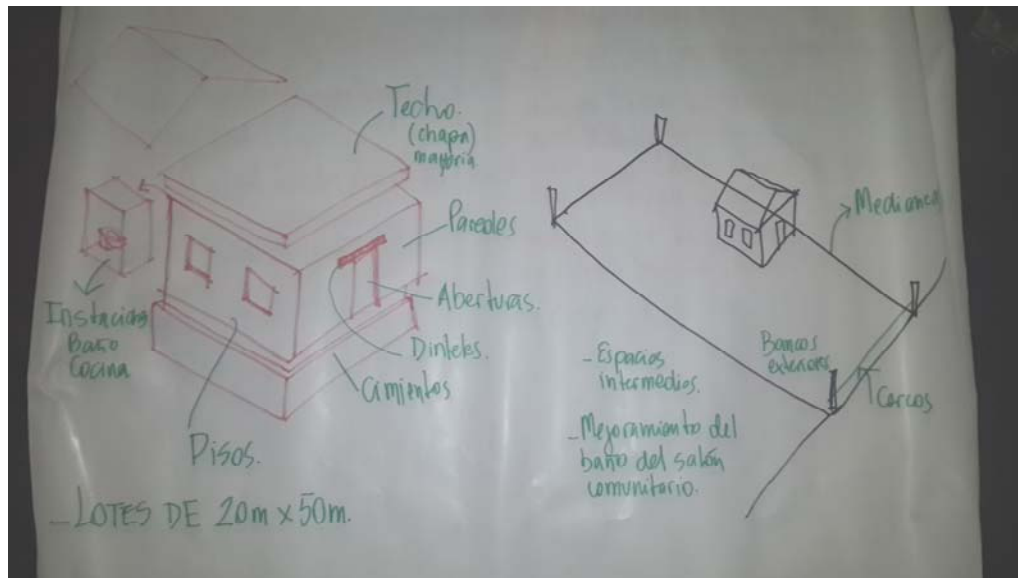 Techo.
(chapa)
mayoria
Paredes
Aberturas.
Dinteles.
Cimientos
Baño
Cocina
Pisos.
_ LOTES DE 20m x 50m.
Medianera
Bancos
exteriores
Cercos
_ Espacios
intermedios.
_ Mejoramiento del
baño del salón
comunitario.